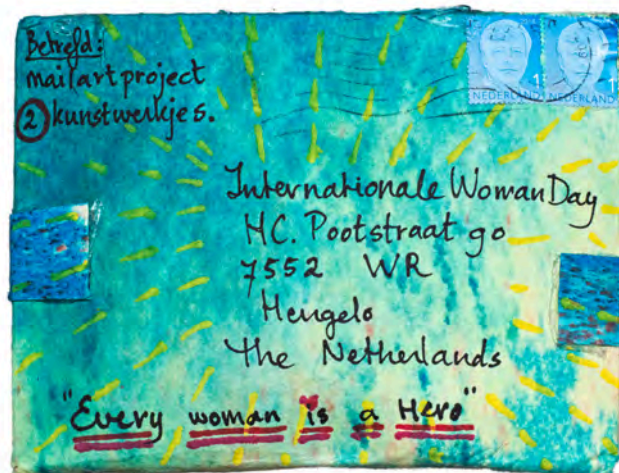 Betreft:
mail art project
② kunstwerkjes.
NEDERLAND 1
NEDERLAND 1
Internationale Woman Day
HC. Pootstraat 90
7552 WR
Hengelo
The Netherlands
"Every woman is a Hero"